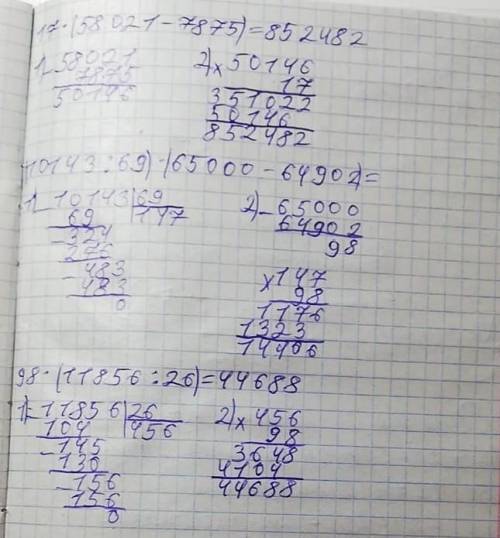 17·(58021-7875)=852482
1) 58021 2) × 50146
- 7875 17
50146 351022
50146
852482
(10143:69)·(65000-64902)=
1) 10143|69 2) - 65000
69 147 64902
- 324 98
276
- 483 × 147
483 98
0 1176
1323
14406
98·(11856:26)=44688
1) 11856|26 2) × 456
104 456 98
- 145 3648
130 4104
- 156 44688
156
0